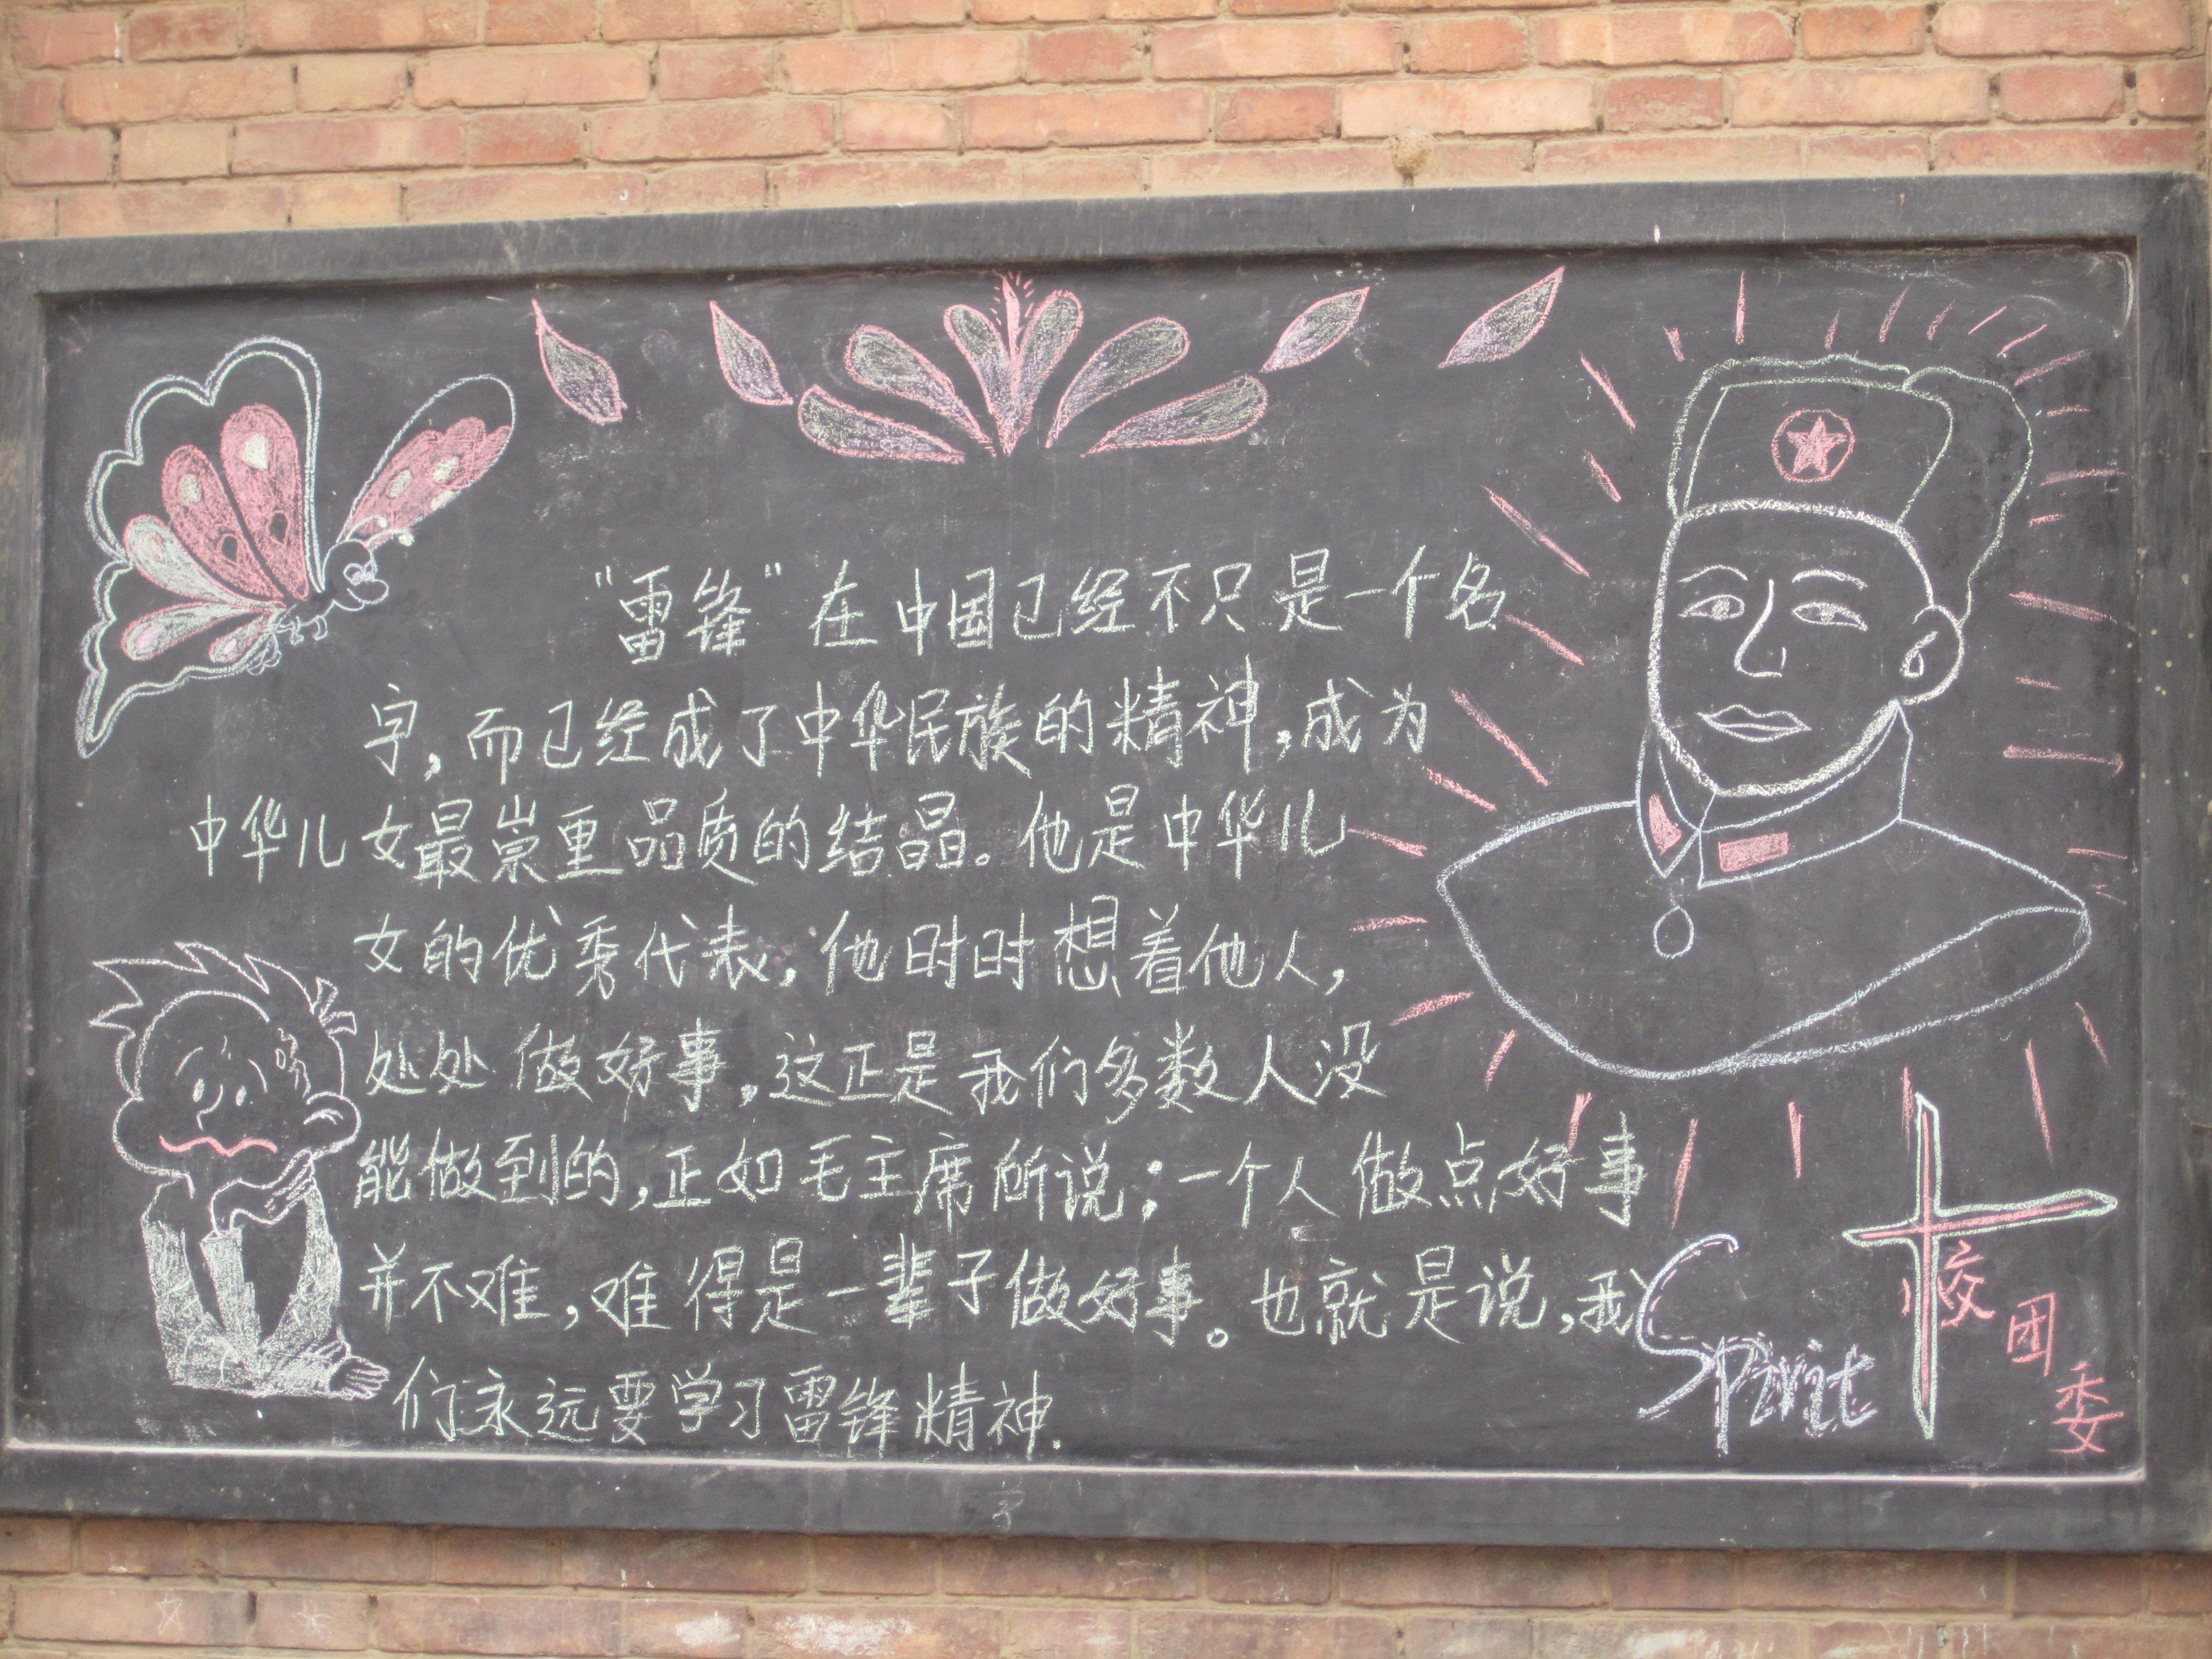 “雷锋”在中国已经不只是一个名
字，而已经成了中华民族的精神，成为
中华儿女最崇重品质的结晶。他是中华儿
女的优秀代表，他时时想着他人，
处处做好事，这正是我们多数人没
能做到的，正如毛主席所说；一个人做点好事
并不难，难得是一辈子做好事。也就是说，我
们永远要学习雷锋精神.
Spirit
校团委